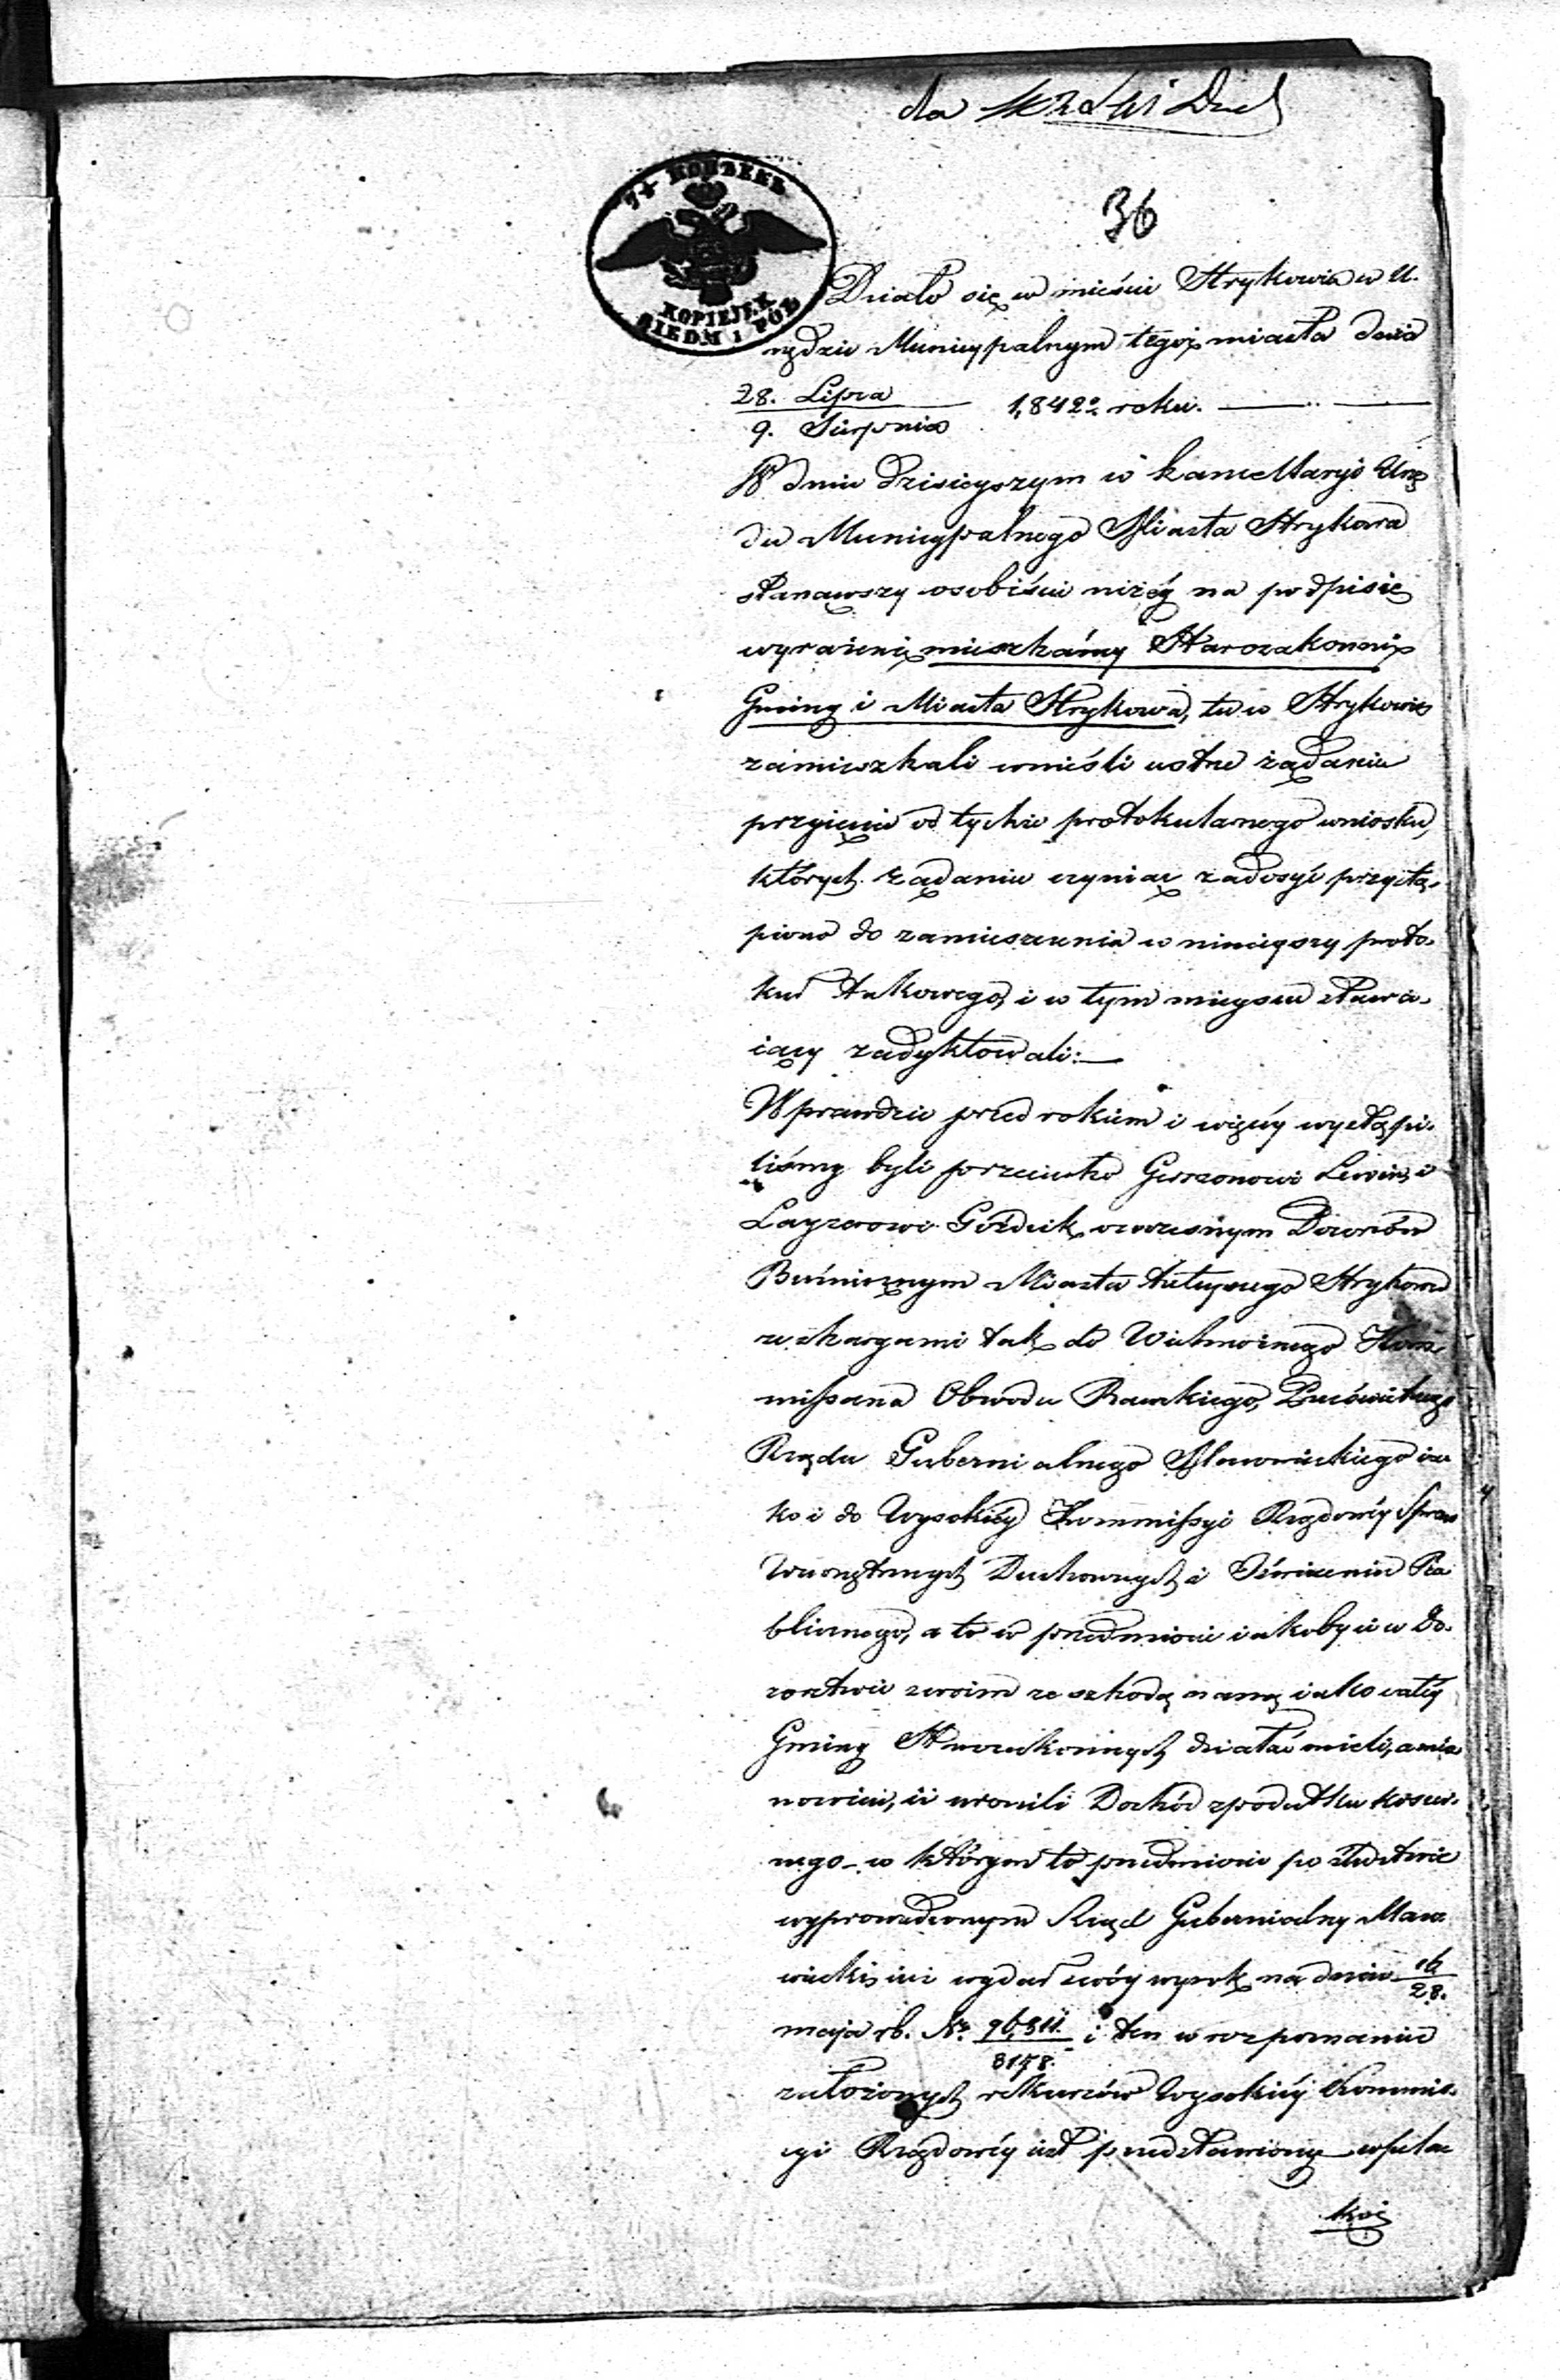 36
7½ КОПѢЕКЪ
KOPIEJEK
SIEDM I PÓŁ
Działo się w mieście Strykowie w U.
rzędzie Municypalnym tegoż miasta dnia
28. Lipca
9. Sierpnia 1,842o roku.
W dniu dzisieyszym w kancellaryi Urzę
du Municypalnego Miasta Strykowa
stanąwszy osobiście niżéy na podpisie
wyrażeni mieszkańcy Starozakonni
Gminy i Miasta Strykowa, tu w Strykowie
zamieszkali wnieśli ustne żądanie
przyięcia od tychże protokularnego wniosku,
których żądaniu czyniąc zadosyć przystą-
piono do zamieszczenia w ninieyszy proto-
kuł takowego, i w tym mieyscu stawa-
iący zadyktowali:
Wprawdzie przed rokiem i więcéy wystąpi-
liśmy byli przeciwko Gerszonowi Lewin, i
Layzerowi wczesnym Dozorcóm
Bużnicznym Miasta tuteyszego Strykowa
ze skargami tak do Wielmożnego Kom-
missarza Obwodu Rawskiego,
Rządu Gubernialnego Mazowieckiego ia
ko i do Wysokiéy Kommissyi Rządowéy Spraw
Wewnętrznych Duchownych i Oświecenia Pu
blicznego, a to w przedmiocie iakoby ci w do-
zorstwie swoim ze szkodą naszą iako całéy
Gminy Starozakonnych działać mieli, a mia
nowicie, iż uronili Dochód z podatku koszer-
nego - w którym to przedmiocie po śledztwie
wyprowadzonym Rząd Gubernialny Mazo-
wiecki iuż wydał swóy wyrok na dniu 16
28.
maja rb. No. 96,311. i ten w rozpoznanie
3178.
założonych rekursów Wysokiéy Kommis-
syi Rządowéy iest przedstawiony